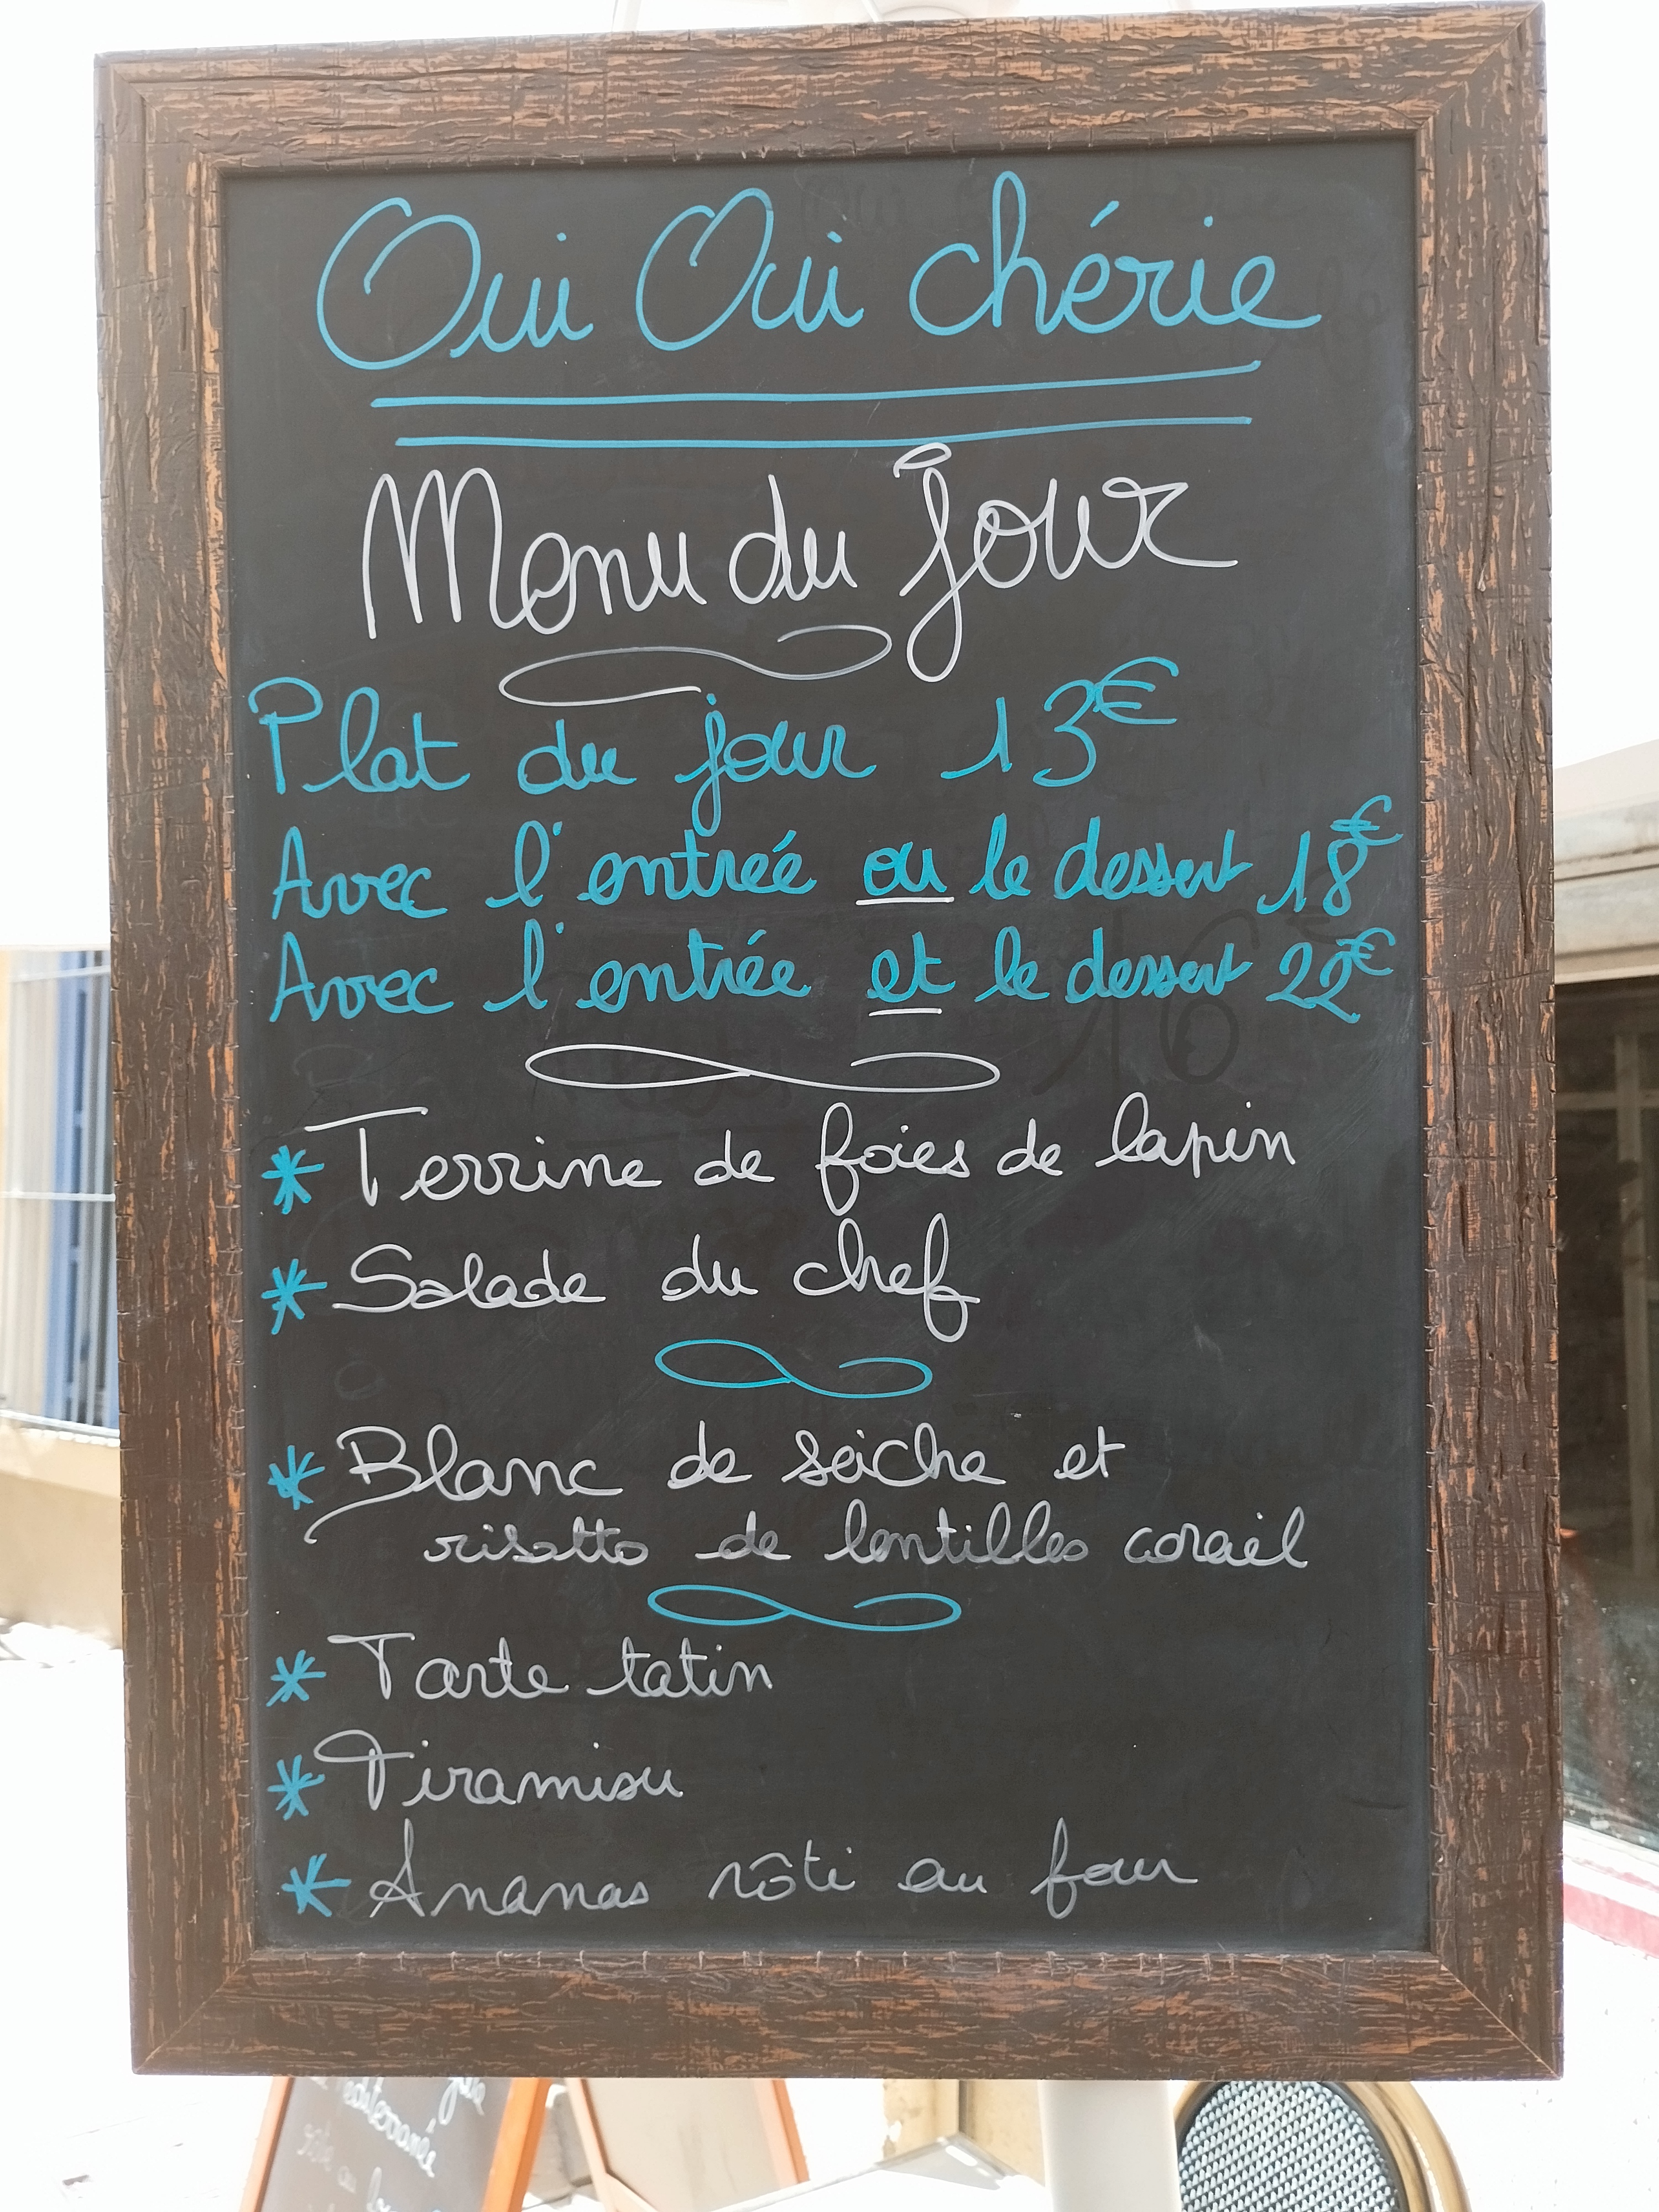 Oui Oui chérie
Menu du jour
Plat du jour 13€
Avec l'entrée ou le dessert 18€
Avec l'entrée et le dessert 22€
* Terrine de foies de lapin
* Salade du chef
* Blanc de seiche et
risotto de lentilles corail
* Tarte tatin
* Tiramisu
* Ananas rôti au four